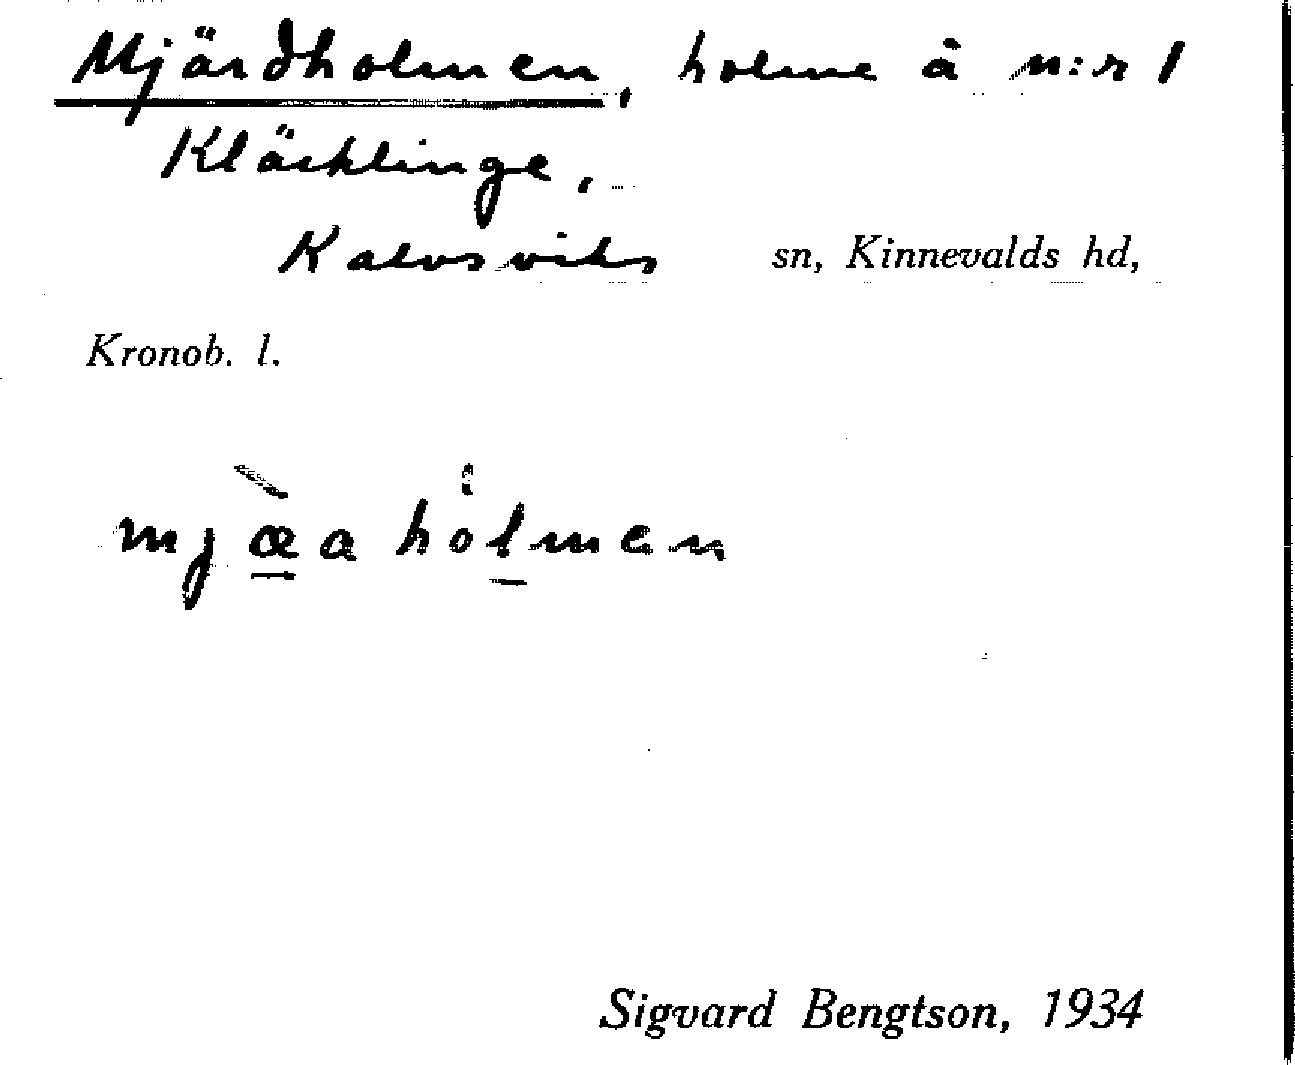 Mjärdholmen, holme å n:r 1
Kläcklinge,
Kalvsviks sn, Kinnevalds hd,
Kronob. l.
mjæ̀a hölmen
Sigvard Bengtson, 1934